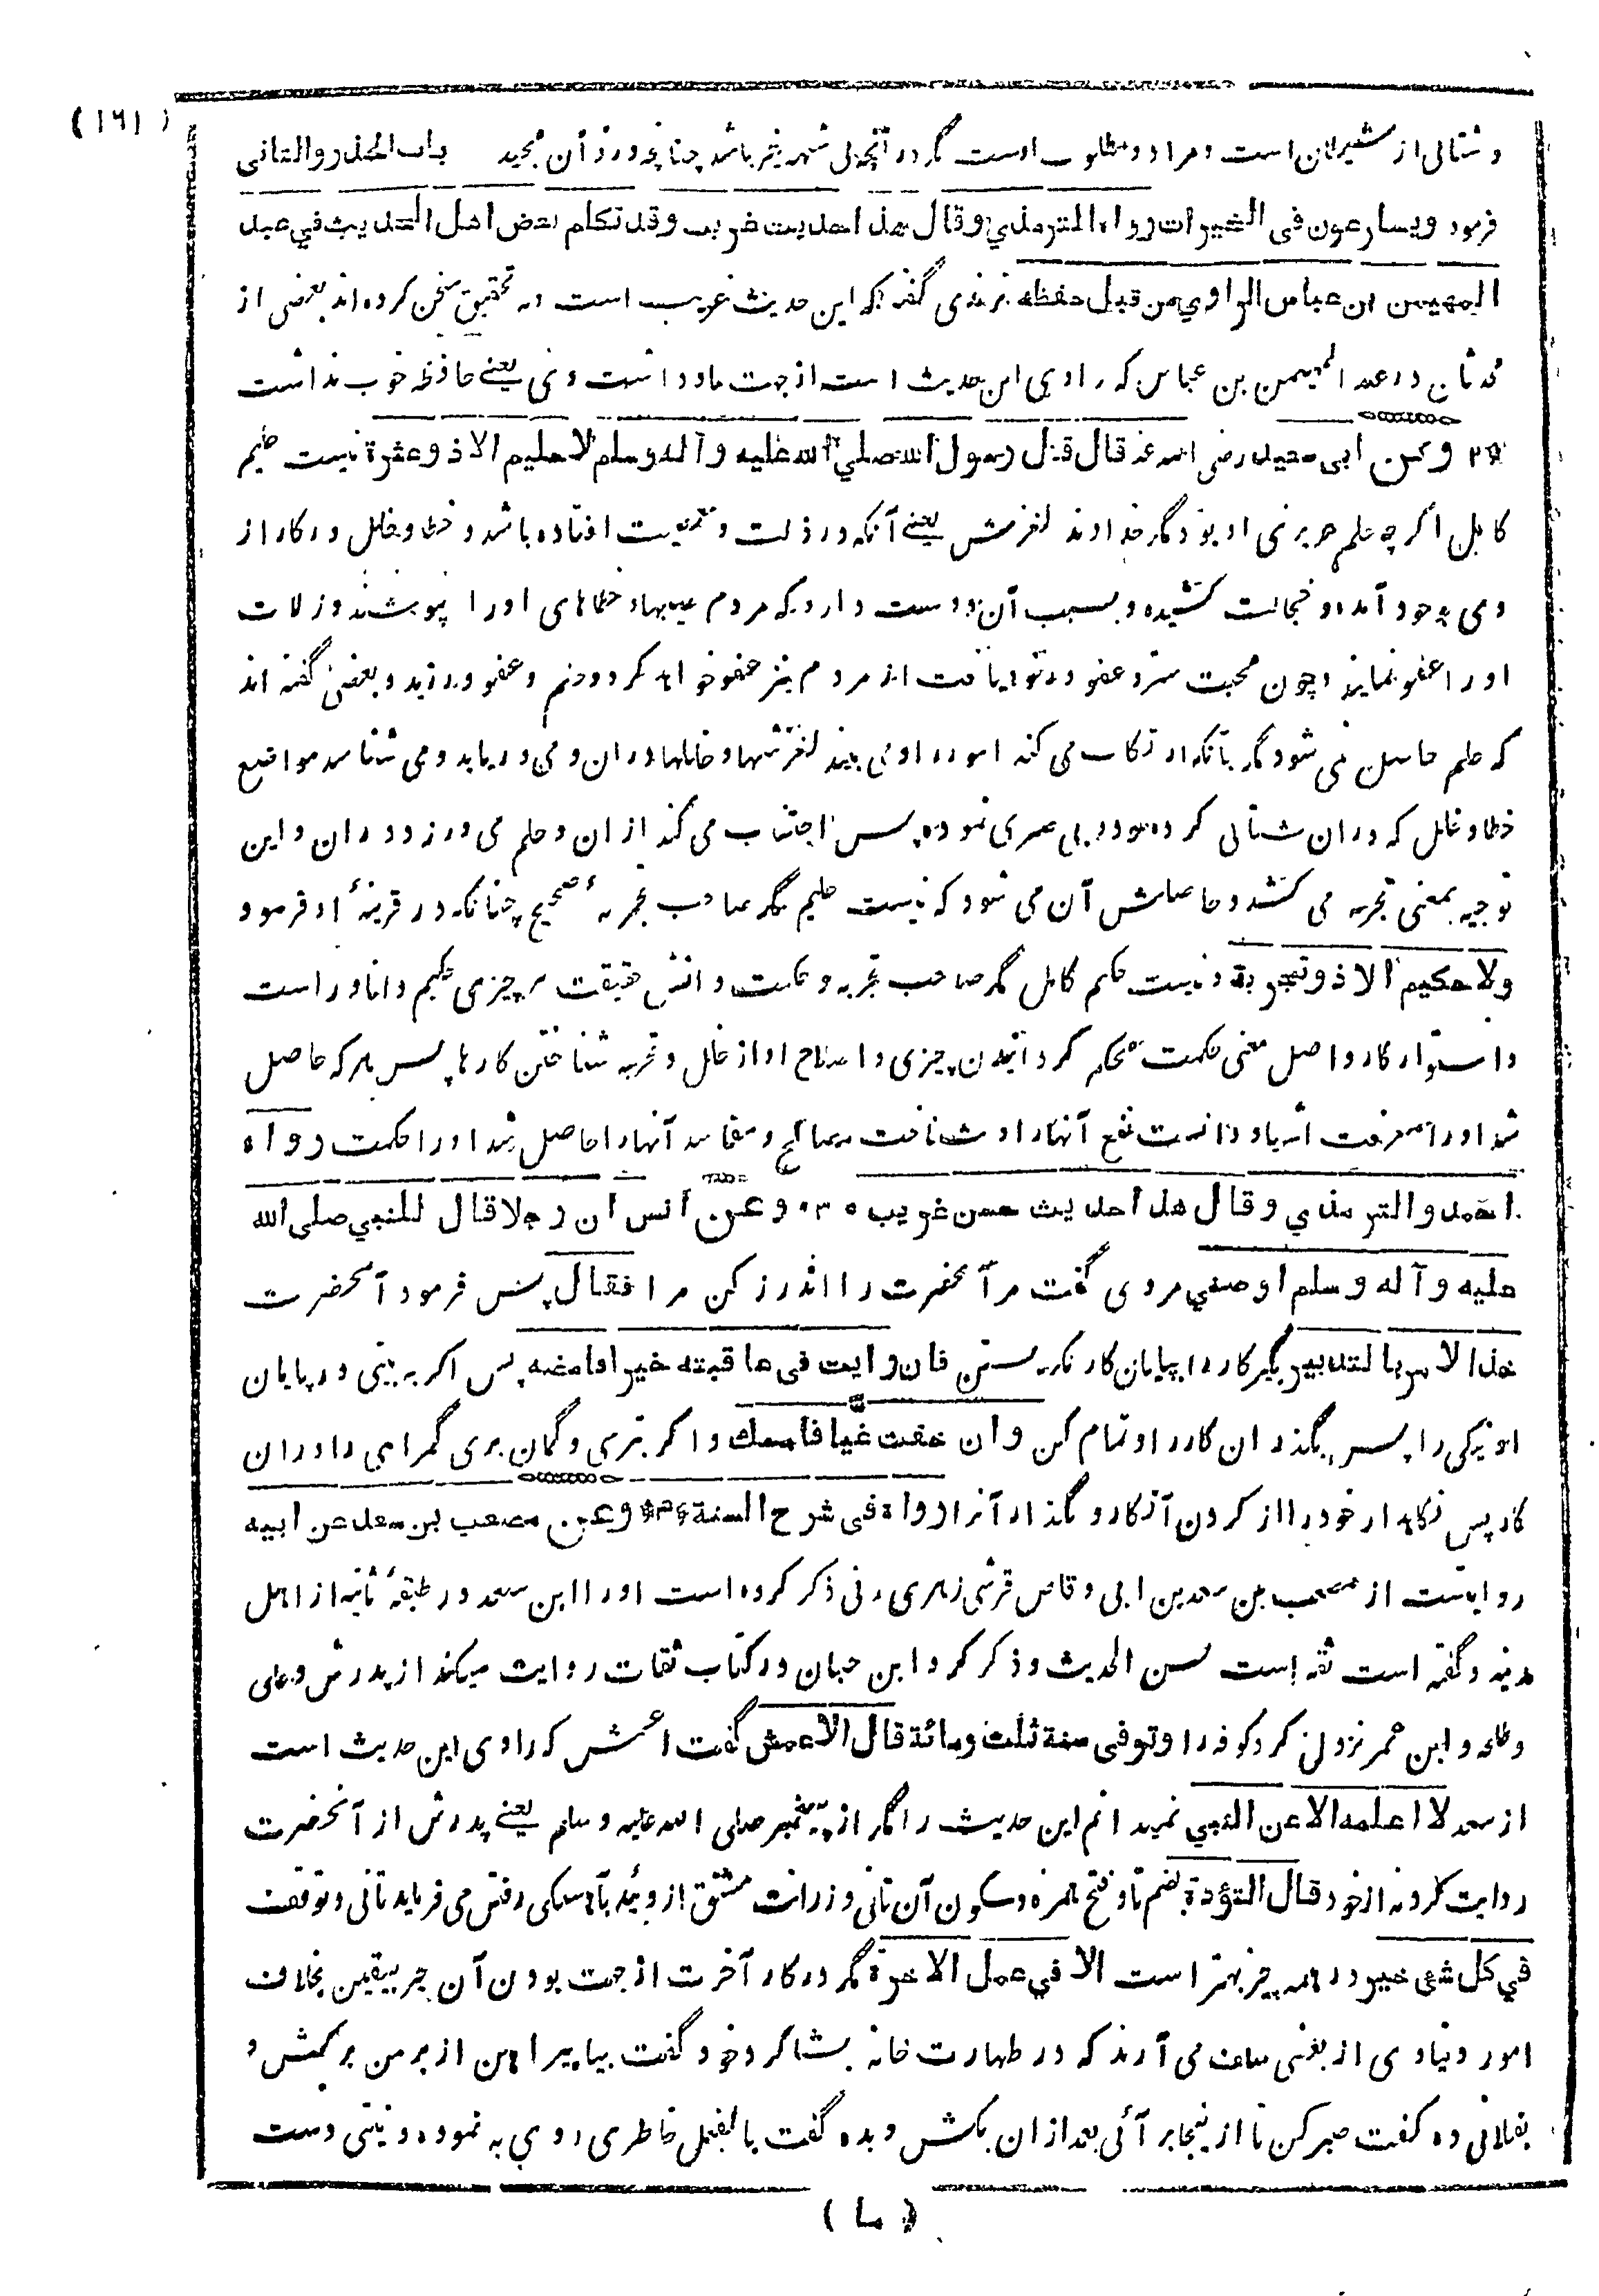 (١٦١)
وشتابی از شیطان است ومراد ومطلوب اوست مگر در آنچه بی شبهه خیر باشد چنانچه در قرآن مجید باب الحذر والتانی
فرمود ویسارعون فی الخیرات رواه الترمذي وقال هذا حدیث غریب وقد تکلم بعض اهل الحدیث في عبد
المهیمن بن عباس الراوي من قبل حفظه ترمذی گفته که این حدیث غریب است وبه تحقیق سخن کرده اند بعضی از
محدثان در عبد المهیمن بن عباس که راوی این حدیث است از جهت یادداشت وی یعنے حافظه خوب نداشت
وعن ابی سعید رضی الله عنه قال قال رسول الله صلي الله علیه وآله وسلم لا حلیم الا ذو عثرة نیست حلیم
کامل اگرچه حلم غریزی او بود مگر خداوند لغزش یعنے آنکه در ذلت و معصیت افتاده باشد و خطا وخلل در کار از
وی بوجود آمده و خجالت کشیده وبسبب آن دوست دارد که مردم عیبها وخطاهای اورا بپوشند وزلات
اورا عفو نمایند وچون محبت ستر وعفو در خود یافت از مردم نیز عفو خواهد کرد وحلم وعفو ورزید وبعضی گفته اند
که حلم حاصل نمی شود مگر بآنکه ارتکاب می کند امور را ومی بیند لغزشها وخللها دران ومی دریابد ومی شناسد مواضع
خطا وخلل که دران شتابی کرده بود وبی صبری نموده پس اجتناب می کند ازان وحلم می ورزد دران واین
توجیه بمعنی تجربه می کشد وحاصلش آن می شود که نیست حلیم مگر صاحب تجربهٔ صحیح چنانکه در قرینهٔ او فرمود
ولا حکیم الا ذو تجربة ونیست حکیم کامل مگر صاحب تجربه وحکمت دانش حقیقت هر چیزی حکیم دانا وراست
واستوار کار واصل معنی حکمت محکم گردانیدن چیزی واصلاح او از خلل وتجربه شناختن کارها پس هرکه حاصل
شد اورا معرفت اشیا ودانست نفع آنها را وشناخت مصالح ومفاسد آنها را حاصل شد اورا حکمت رواه
احمد والترمذي وقال هذا حدیث حسن غریب ٣٠ وعن انس ان رجلا قال للنبي صلی الله
علیه وآله وسلم اوصني مردی گفت مر آنحضرت را اندرز کن مرا فقال پس فرمود آنحضرت
خذ الامر بالتدبیر بگیر کار را بپایان کار نگریستن فان رایت فی عاقبته خیرا فامضه پس اگر به بینی در پایان
او نیکی را پس بگذران کار را وتمام کن وان خفت غیا فامسك واگر بترسی وگمان بری گمراهی را دران
کار پس نگاهدار خود را از کردن آن کار وبگذار آنرا رواه فی شرح السنة وعن مصعب بن سعد عن ابیه
روایتست از مصعب بن سعد بن ابی وقاص قرشی زهری مدنی ذکر کرده است اورا ابن سعد در طبقهٔ ثانیه از اهل
مدینه وگفته است ثقه است حسن الحدیث وذکر کرد ابن حبان در کتاب ثقات روایت میکند از پدرش وعلی
وطلحه وابن عمر نزول کرد کوفه را وتوفی سنة ثلث ومائة قال الاعمش گفت اعمش که راوی این حدیث است
از سعد لا اعلمه الا عن النبي نمیدانم این حدیث را مگر از پیغمبر صلی الله علیه وسلم یعنے پدرش از آنحضرت
روایت کرد نه از خود قال التؤدة بضم تا وفتح همزه وسکون آن تانی ورزانت مشتق از وئید بآهستگی رفتن می فرماید تانی وتوقف
في کل شئ خیر در همه چیز بهتر است الا في عمل الاخرة مگر در کار آخرت از جهت بودن آن خیر بیقین بخلاف
امور دنیاوی از بعضی سلف می آرند که در طهارت خانه بشاگرد خود گفت بیا پیراهن از بر من برکش و
بفلانی ده گفت صبر کن تا از ینجا برآئی بعد ازان بکش وبده گفت بالفعل خاطری روی به نموده ونیتی دست